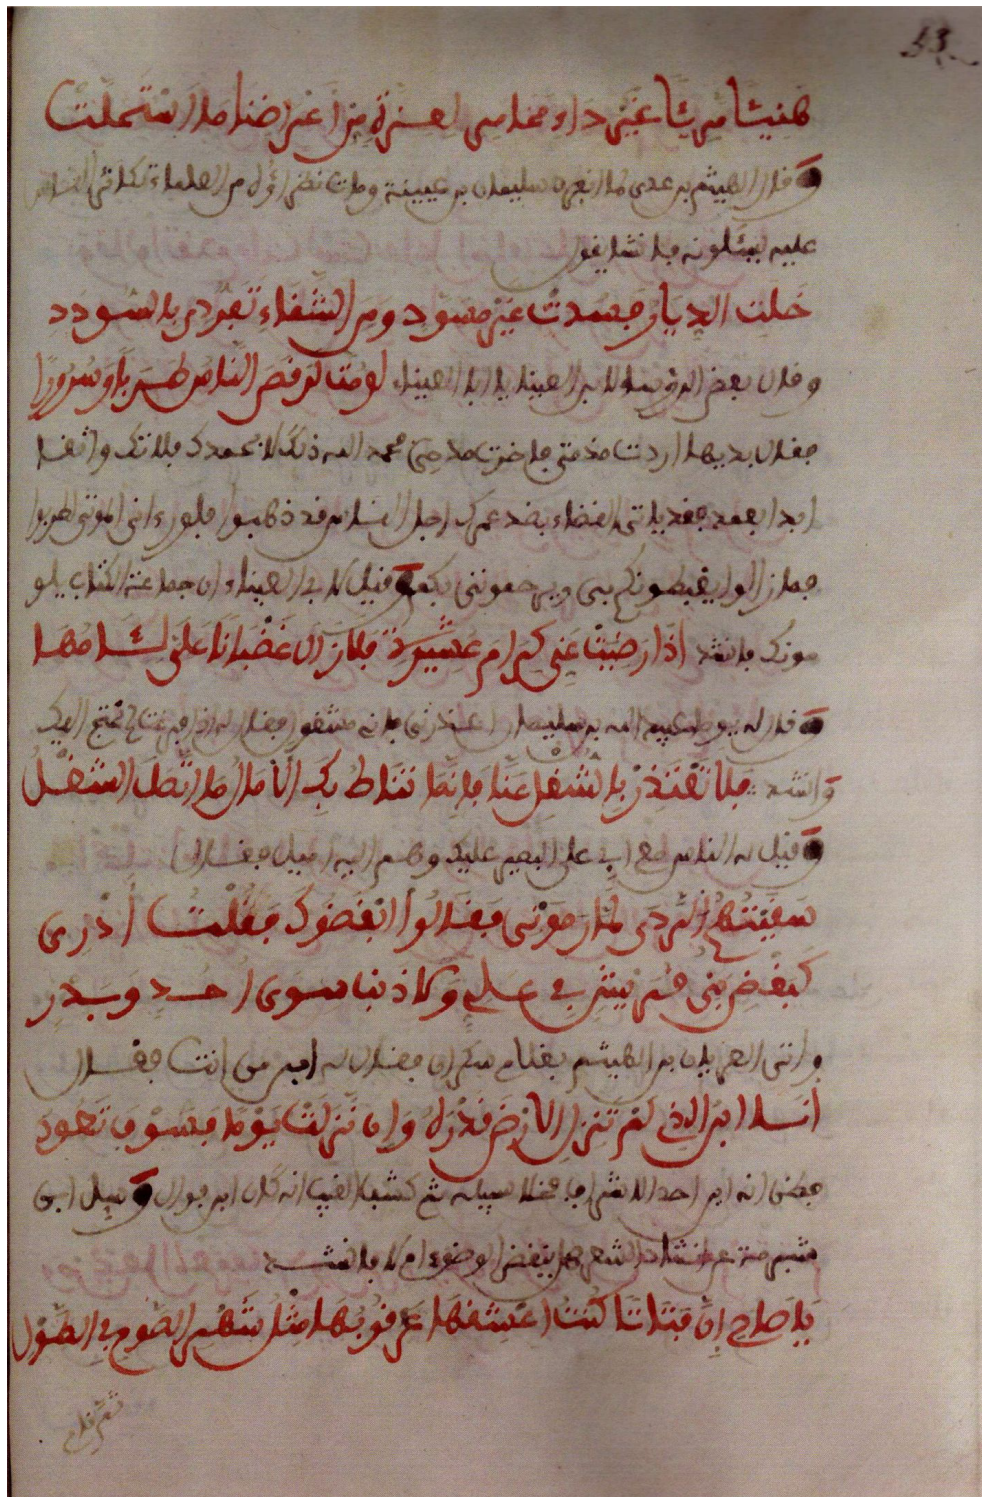 هنيئا مريئا غير داء مخامر لعزة من أعراضنا ما استحلت
وقال الهيثم بن عدي لما انفرد سفيان بن عيينة ومات نظراؤه من العلماء تكاثر الناس
عليه يسألونه فأنشأ يقول
خلت الديار فسدت غير مسود ومن الشقاء تفردي بالسودد
وقال بعض الرؤساء لأبي العيناء يا أبا العيناء لو مت لرقص الناس طربا وسرورا
فقال بديها أردت مذمتي فأجدت مدحي بحمد الله ذلك لا بحمدك فلا تك واثقا
أبدا بعمد فقد يأتي القضاء بضد عمدك أجل الناس قد ذهبوا فلو رءاني الموتى لطربوا
فما زالوا يغبطونكم بي ويرحمونني بكم وقيل لأبي العيناء إن جماعة الكتاب يلو
مونك فأنشد إذا رضيت عني كرام عشيرتي فلا زال غضبانا علي لئامها
وقال له يوما عبيد الله بن سليمان اعذرني فإني مشغول فقال له إذا فرغت لم نحتج إليك
وأنشد فلا تعتذر بالشغل عنا فإنما تناط بك الآمال ما اتصل الشغل
وقيل له الناس مع أبي علي البصير عليك وهم إليه أميل فقال
كبغض بني قسر بيثربي علي ولا ذنبا سوى أحد وبدر
وأتى العريان بن الهيثم بغلام سكران فقال له ابن من أنت فقال
أنا ابن الذي لم تنزل الأرض قدره وإن نزلت يوما فسوف تعود
فظن أنه ابن أحد الأشراف فخلا سبيله ثم كشف الغيب أنه كان ابن فوال وسئل ابن
شبرمة عن إنشاد الشعر هل ينقض الوضوء أم لا فأنشد
يا صاح إن فتاتا كنت أعشقها عرقوبها مثل شهر الصوم في الطول